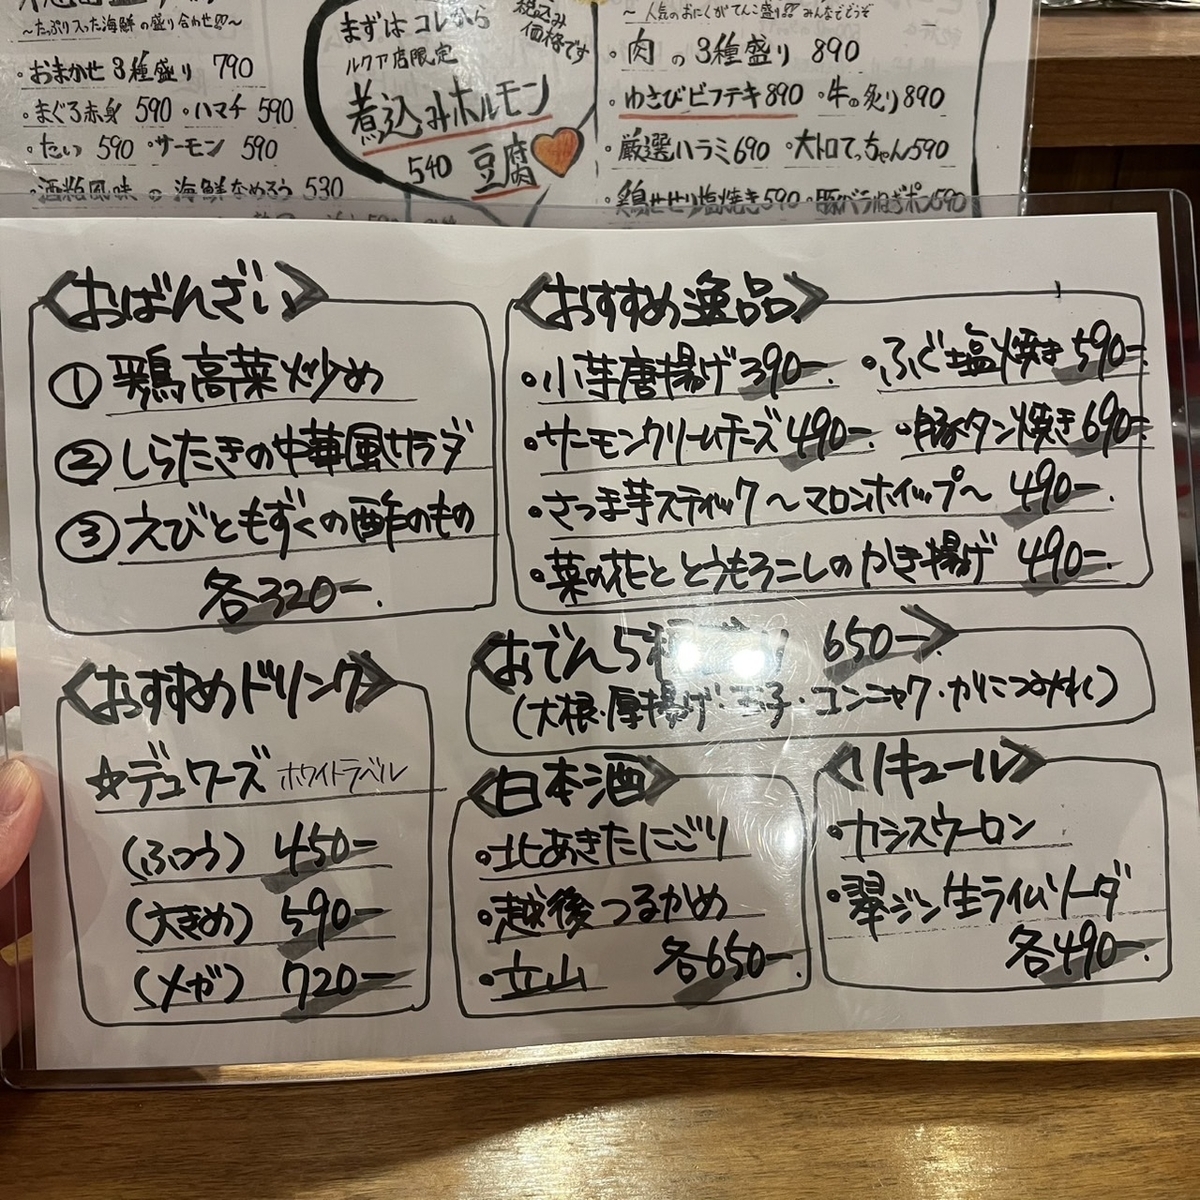 〜たっぷり入った海鮮の盛り合わせ!!〜
・おまかせ3種盛り 790
・まぐろ赤身 590 ・ハマチ 590
・たい 590 ・サーモン 590
・酒粕風味の海鮮なめろう 530
まずはコレから
ルクア店限定
煮込みホルモン
540 豆腐
税込み
価格です
〜人気のおにくがてんこ盛り!!みんなでどうぞ
・肉の3種盛り 890
・わさびビフテキ 890 ・牛の炙り 890
・厳選ハラミ 690 ・大トロてっちゃん 590
・鶏せせり塩焼き 590 ・豚バラねぎポン 590
〈おばんざい〉
① 鶏高菜炒め
② しらたきの中華風サラダ
③ えびともずくの酢のもの
各320-.
〈おすすめ逸品〉
・小芋唐揚げ 390-. ・ふぐ塩焼き 590-.
・サーモンクリームチーズ 490-. ・豚タン焼き 690-.
・さつま芋スティック〜マロンホイップ〜 490-.
・菜の花ととうもろこしのかき揚げ 490-.
〈おでん5種盛り 650-〉
(大根・厚揚げ・玉子・コンニャク・かにつみれ)
〈おすすめドリンク〉
☆デュワーズ ホワイトラベル
(ふつう) 450-
(大きめ) 590-
(メガ) 720-
〈日本酒〉
・北あきたにごり
・越後つるかめ
・立山 各650-.
〈リキュール〉
・カシスウーロン
・翠ジン生ライムソーダ
各490-.